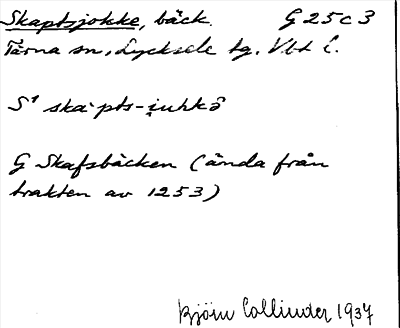 Skaptsjokke, bäck. G 25 c 3
Tärna sn, Lycksele tg. Vbt l.
S¹ ska·pts-i̯uhkə̑
G Skafsbäcken (ända från
trakten av 1253)
Björn Collinder 1937